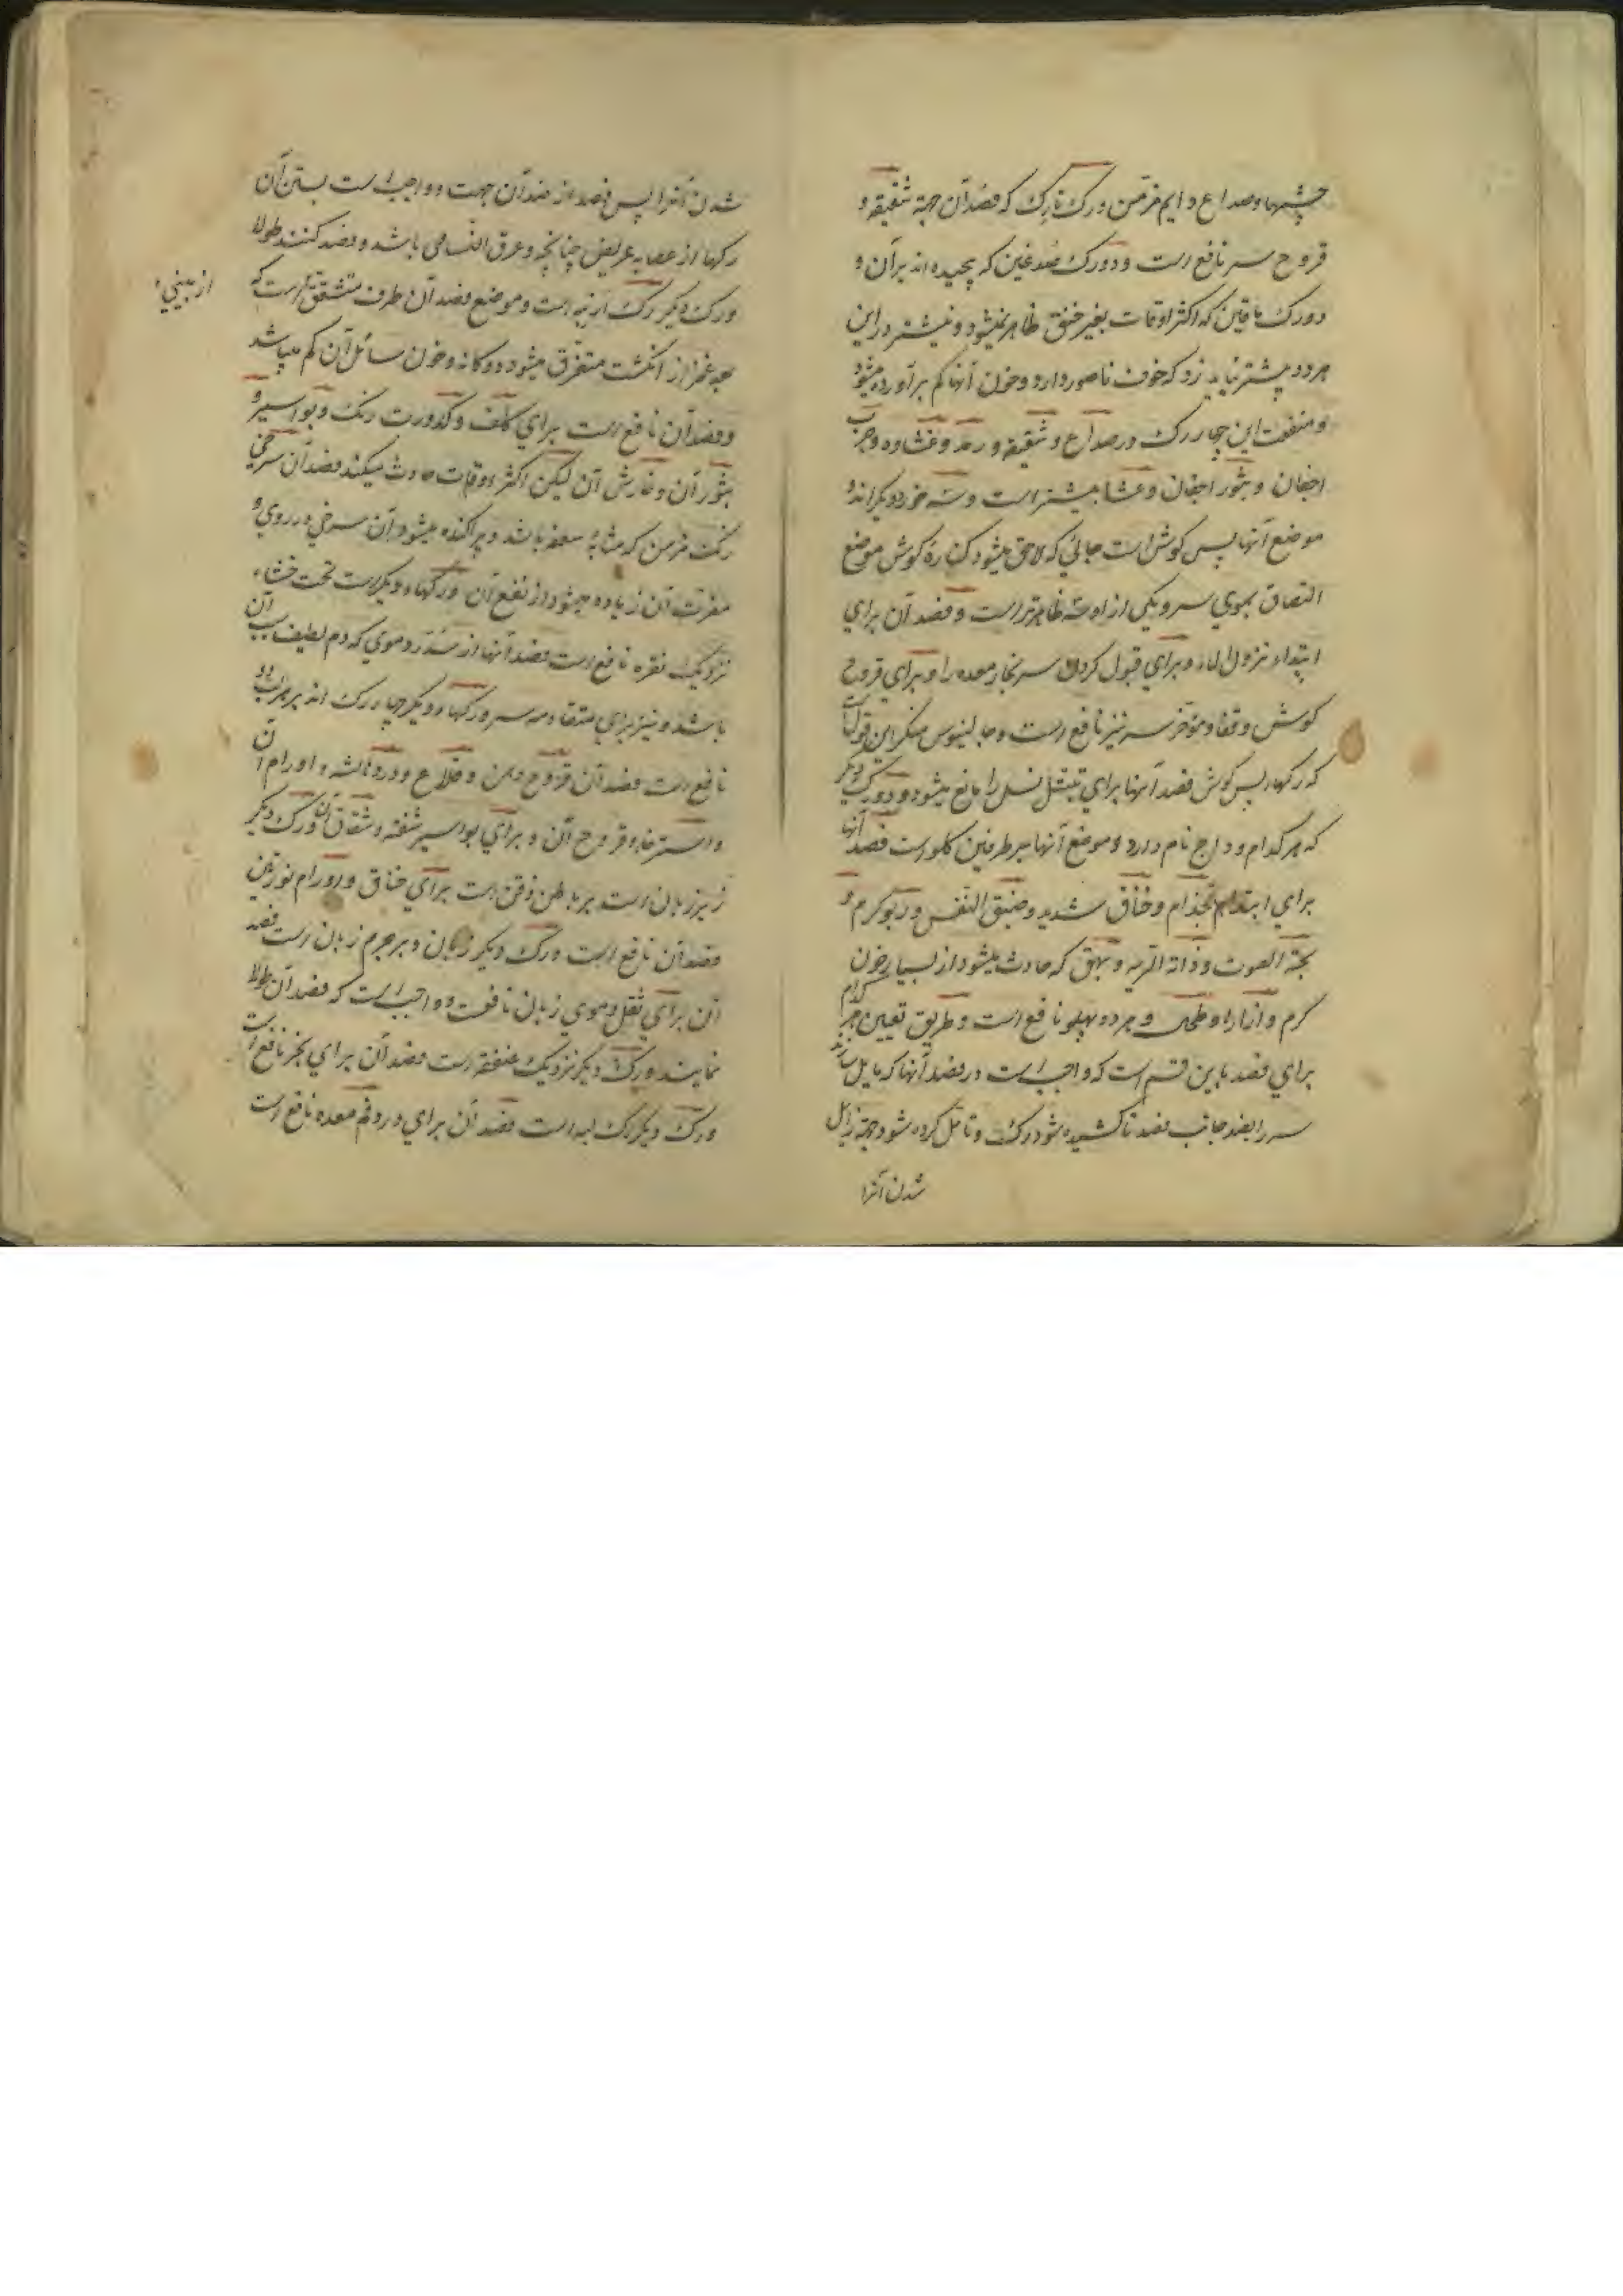 چشمها و صداع دایم مزمن و رک تارک که فصد آن جهة شقیقه و
قروح سر نافع است و دو رک صدغین که پیچیده اند بر آن و
دو رک ماقین که اکثر اوقات بغیر خنق ظاهر نمیشود و نیشتر در این
هر دو پیشتر نباید زد که خوف ناصور دارد و خون آنها کم برآورده میشود
و منفعت این چهار رک در صداع و شقیقه و رمد و غشاوه و جرب
اجفان و بثور اجفان و عشا بیشتر است و سه خرد دیگر اند و
موضع آنها پس کوش است جائی که لاحق میشود کنارهٔ کوش موضع
التصاق بموی سر و یکی از او سه ظاهرتر است و فصد آن برای
ابتداء نزول الماء و برای قبول کردن سر بخار معده را و برای قروح
کوش و قفا و مؤخر سر نیز نافع است و جالینوس منکر این قول است
که رکهاء پس کوش فصد آنها برای تبتل نسل را مانع میشود و دو رک دیگر
که هر کدام وداج نام دارد و موضع آنها بر طرفین کلو است فصد آنها
برای ابتداء جذام و خناق شدید و ضیق النفس و ربو کرم و
بحة الصوت و ذات الریه و بهق که حادث میشود از بسیار خون
کرم و آزارا و طحال و هر دو پهلو نافع است و طریق تعیین هر کدام
برای فصد باین قسم است که واجب است در فصد آنها که مایل سازند
سر را بضد جانب فصد تا کشیده شود رک و تامل کرده شود جهة زایل
شدن آنرا
شدن آنرا پس فصد از ضد آن جهت و واجب است بستن آن
رکها از عصابه عریض چنانچه و عرق النسا می باشد و فصد کنند طولا
و رک دیگر رک ارنبه است و موضع فصد آن طرف متشقق است که
از بینی
بعد غمز از انکشت متفرق میشود دوکانه و خون سائل آن کم میباشد
و فصد آن نافع است برای کلف و کدورت رنک و بواسیر و
بثور آن و خارش آن لیکن اکثر اوقات حادث میکند فصد آن سرخی
رنک مزمن که مشابه سعفه باشد و پراکنده میشود آن سرخی در روی و
مضرت آن زیاده میشود از نفع آن و رکهاء دیگر است تحت خششاء
نزدیک نقره نافع است فصد آنها از سدر دموی که دم لطیف سبب آن
باشد و نیز برای متقادمه سر و رکهاء دیگر چهار رک اند بر هر لب دو
نافع است فصد آن قروح دهن و قلاع و درد لثه و اورام آن
و استرخا و قروح آن و برای بواسیر شفه و شقاق آن و رک دیگر
زیر زبان است بر باطن ذقن است برای خناق و اورام لوزتین
فصد آن نافع است و رک دیگر زبان و بر جرم زبان است فصد
آن برای ثقل دموی زبان نافعست و واجب است که فصد آن طولا
نمایند و رک دیگر نزدیک عنفقه است فصد آن برای بخر نافع است
و رک دیگر رک لبه است فصد آن برای درد فم معده نافع است